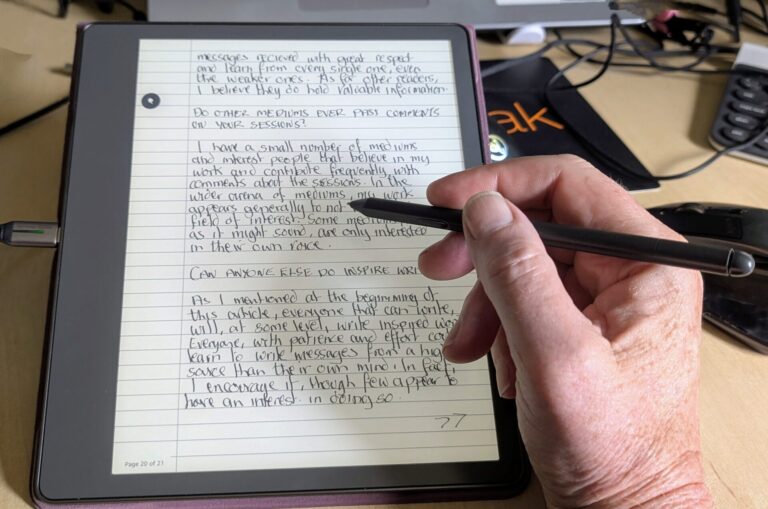 messages recieved with great respect
and learn from every single one, even
the weaker ones. As for other readers,
I believe they do hold valuable information
DO OTHER MEDIUMS EVER PASS COMMENTS
ON YOUR SESSIONS?
I have a small number of mediums
and interest people that believe in my
work and contribute frequently, with
comments about the sessions. In the
wider arena of mediums, my work
appears generally to not
field of interest. Some
as it might sound, are only interested
in their own voice.
CAN ANYONE ELSE DO INSPIRE
As I mentioned at the beginning of
this article, everyone that can write,
will, at some level, write inspired
Everyone, with patience and effort can
learn to write messages from a
source than their own mind. In fact,
I encourage it, though few appear to
have an interest in doing so.
Page 20 of 21